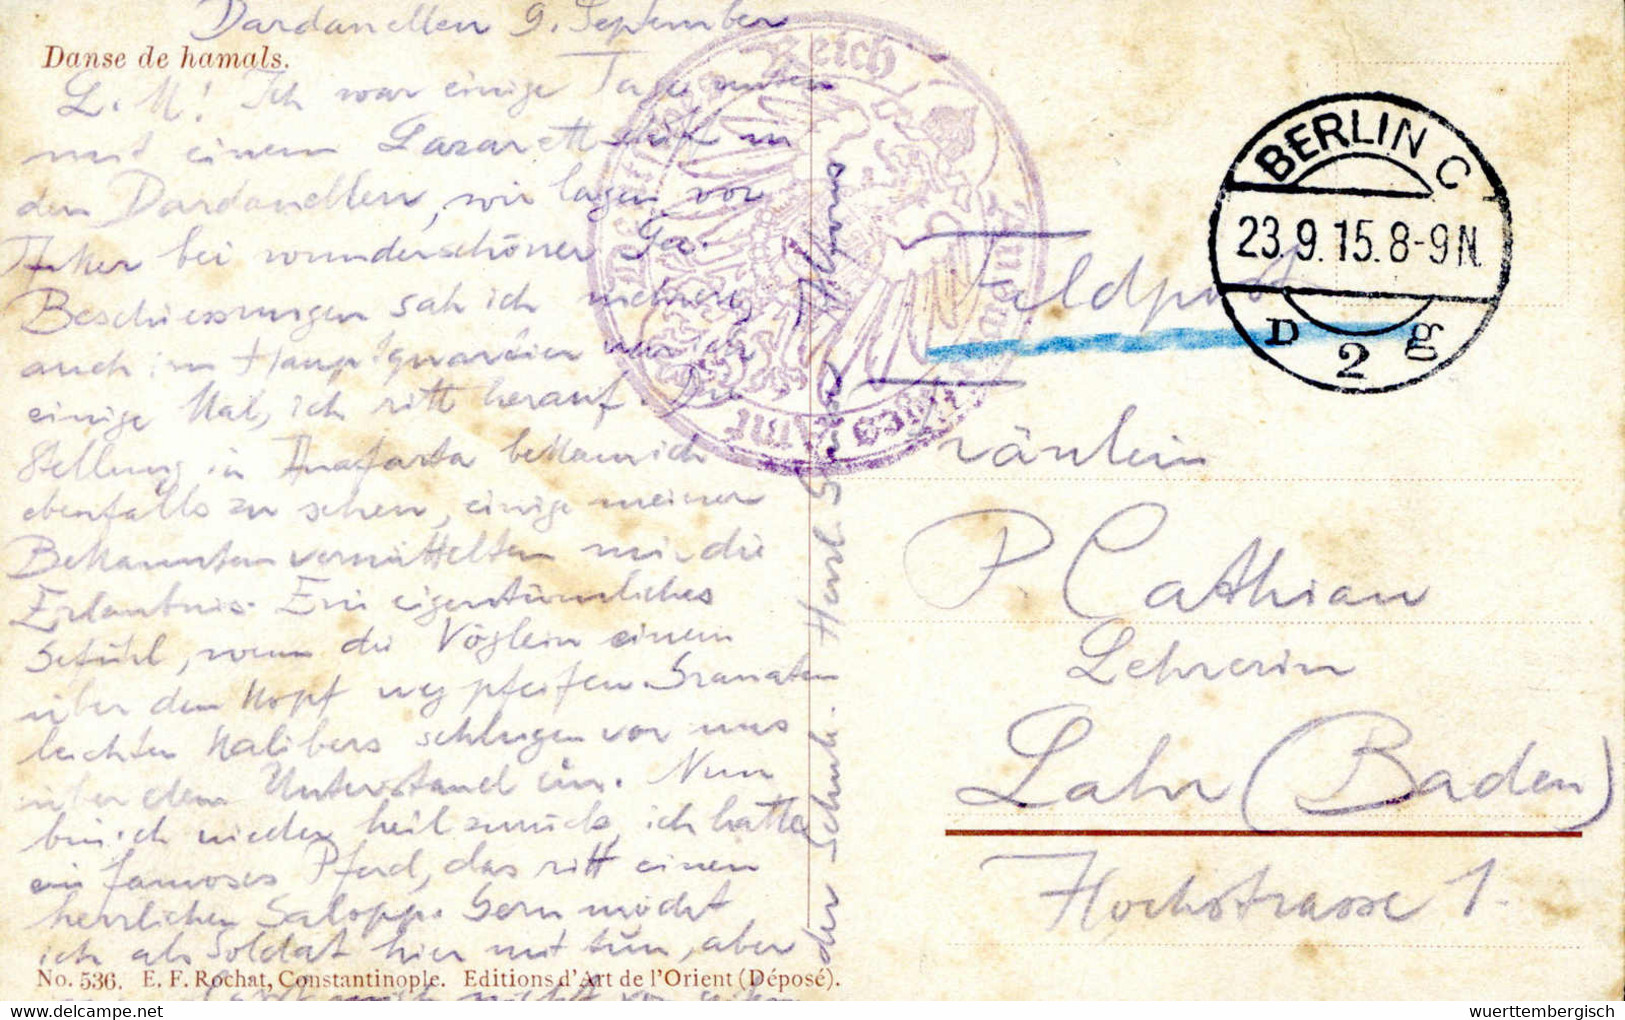 Dardanellen 9. September
Danse de hamals.
L. M! Ich war einige Tage unten
mit einem Lazarettschiff in
den Dardanellen, wir lagen vor
Anker bei wunderschöner
Beschiessungen sah ich mehrere,
auch im Hauptquartier war ich
einige Mal, ich ritt herauf. Die
Stellung in Anafarta bekam ich
ebenfalls zu sehen, einige meiner
Bekannten vermittelten mir die
Erlaubnis. Ein eigentümliches
Gefühl, wenn die Vöglein einem
über den Kopf weg pfeifen. Granaten
leichten Kalibers schlugen vor uns
über dem Unterstand ein. Nun
bin ich wieder heil zurück, ich hatte
ein famoses Pferd, das ritt einen
herrlichen Galopp. Gern möcht
ich als Soldat hier mit tun, aber
No. 536. E. F. Rochat, Constantinople. Editions d'Art de l'Orient (Déposé).
der Schule.
Deutsches Reich
Auswärtiges Amt
BERLIN C
23.9.15.8-9N.
D 2 g
Feldpost
Fräulein
P. Cathiau
Lehrerin
Lahr (Baden)
Hochstrasse 1.
wuerttembergisch